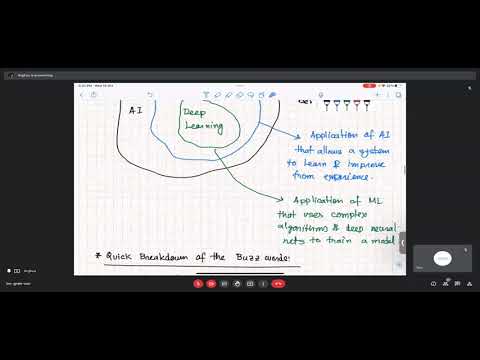 AI
Deep
Learning
Application of AI
that allows a system
to Learn & improve
from experience.
Application of ML
that uses complex
algorithms & deep neural
nets to train a model
* Quick Breakdown of the Buzz words: